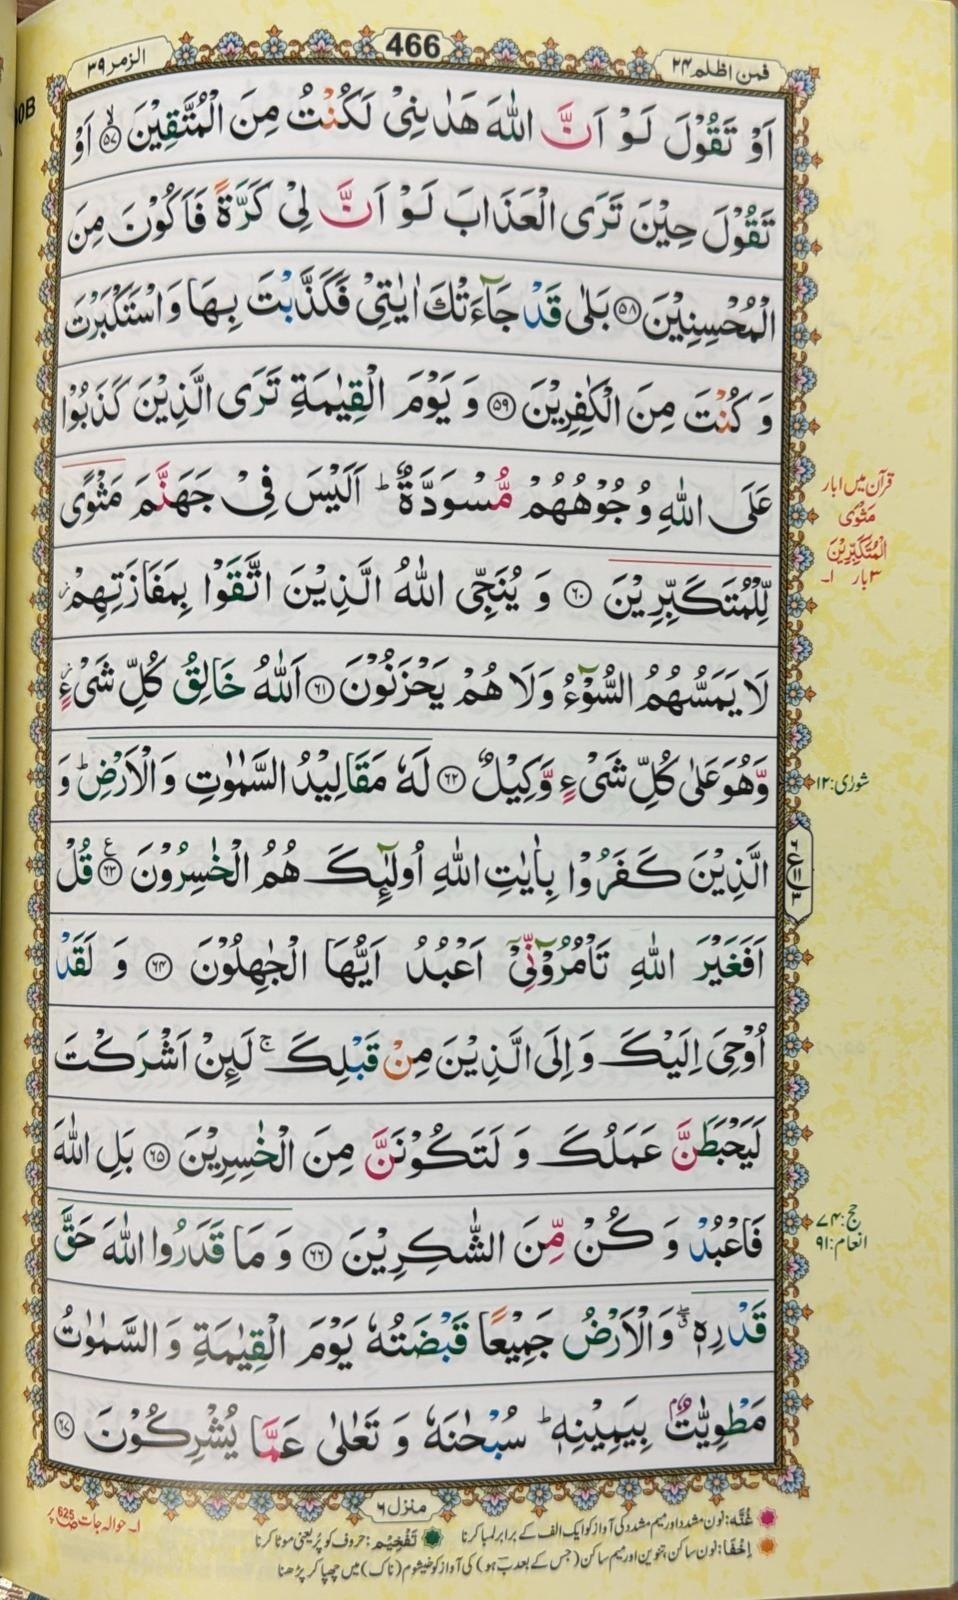 الزمر ٣٩
466
فمن اظلم ٢٤
00B
اَوْ تَقُوْلَ لَوْ اَنَّ اللّٰهَ هَدٰىنِیْ لَكُنْتُ مِنَ الْمُتَّقِیْنَ ۙ﴿۵۷﴾ اَوْ
تَقُوْلَ حِیْنَ تَرَی الْعَذَابَ لَوْ اَنَّ لِیْ كَرَّةً فَاَكُوْنَ مِنَ
الْمُحْسِنِیْنَ ﴿۵۸﴾ بَلٰی قَدْ جَآءَتْكَ اٰیٰتِیْ فَكَذَّبْتَ بِهَا وَ اسْتَكْبَرْتَ
وَ كُنْتَ مِنَ الْكٰفِرِیْنَ ﴿۵۹﴾ وَ یَوْمَ الْقِیٰمَةِ تَرَی الَّذِیْنَ كَذَبُوْا
عَلَی اللّٰهِ وُجُوْهُهُمْ مُّسْوَدَّةٌ ؕ اَلَیْسَ فِیْ جَهَنَّمَ مَثْوًی
لِّلْمُتَكَبِّرِیْنَ ﴿۶۰﴾ وَ یُنَجِّی اللّٰهُ الَّذِیْنَ اتَّقَوْا بِمَفَازَتِهِمْ ؗ
لَا یَمَسُّهُمُ السُّوْٓءُ وَلَا هُمْ یَحْزَنُوْنَ ﴿۶۱﴾ اَللّٰهُ خَالِقُ كُلِّ شَیْءٍ ؗ
وَّهُوَ عَلٰی كُلِّ شَیْءٍ وَّكِیْلٌ ﴿۶۲﴾ لَهٗ مَقَالِیْدُ السَّمٰوٰتِ وَ الْاَرْضِ ؕ وَ
الَّذِیْنَ كَفَرُوْا بِاٰیٰتِ اللّٰهِ اُولٰٓئِكَ هُمُ الْخٰسِرُوْنَ ﴿۶۳﴾ قُلْ
اَفَغَیْرَ اللّٰهِ تَاْمُرُوْٓنِّیْۤ اَعْبُدُ اَیُّهَا الْجٰهِلُوْنَ ﴿۶۴﴾ وَ لَقَدْ
اُوْحِیَ اِلَیْكَ وَ اِلَی الَّذِیْنَ مِنْ قَبْلِكَ ۚ لَىِٕنْ اَشْرَكْتَ
لَیَحْبَطَنَّ عَمَلُكَ وَ لَتَكُوْنَنَّ مِنَ الْخٰسِرِیْنَ ﴿۶۵﴾ بَلِ اللّٰهَ
فَاعْبُدْ وَ كُنْ مِّنَ الشّٰكِرِیْنَ ﴿۶۶﴾ وَ مَا قَدَرُوا اللّٰهَ حَقَّ
قَدْرِهٖ ۖۗ وَالْاَرْضُ جَمِیْعًا قَبْضَتُهٗ یَوْمَ الْقِیٰمَةِ وَ السَّمٰوٰتُ
مَطْوِیّٰتٌۢ بِیَمِیْنِهٖ ؕ سُبْحٰنَهٗ وَ تَعٰلٰی عَمَّا یُشْرِكُوْنَ ﴿۶۷﴾
قرآن میں ابار
مَثْوًى
الْمُتَكَبِّرِیْنَ
۳ بار ۱ـ
شورٰی: ۱۲
ع
حج: ۷۴
انعام: ۹۱
منزل ٦
غُنّه: نون مشدد اور میم مشدد کی آواز کو ایک الف کے برابر لمبا کرنا
تَفْخِیْم: حروف کو پُر یعنی موٹا کرنا
اِخْفَا: نون ساکن، تنوین اور میم ساکن (جس کے بعد ب ہو) کی آواز کو خیشوم (ناک) میں چھپا کر پڑھنا
۱ـ حوالہ جات ص 625 پر